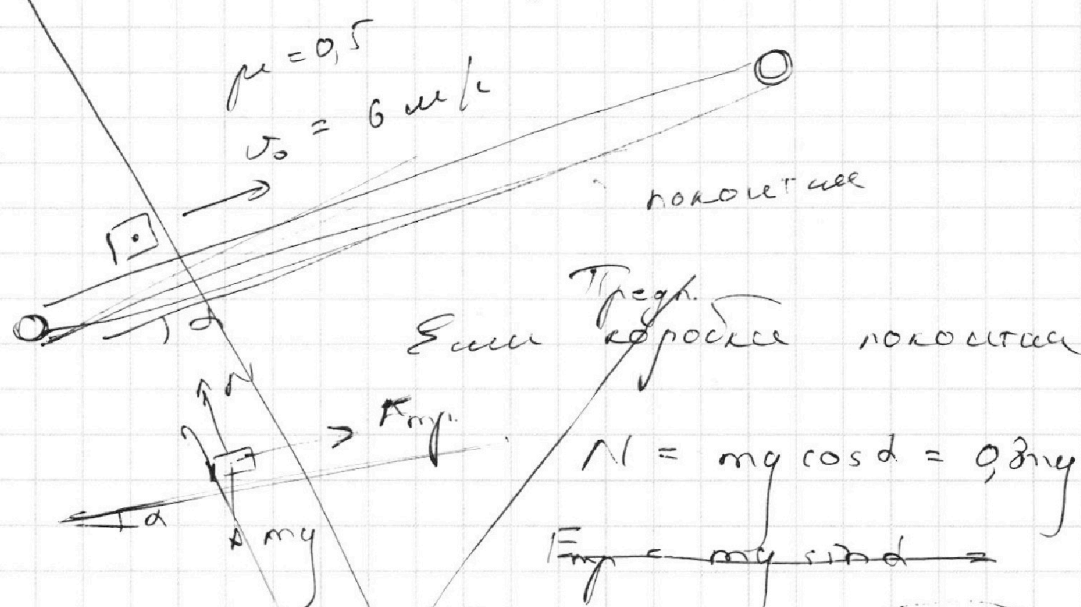 μ = 0,5
v₀ = 6 м/с
покоится
α
Предп.
Если коробка покоится
N
Fтр.
N = mg cos α = 0,8mg
α
mg
Fтр = mg sin α =